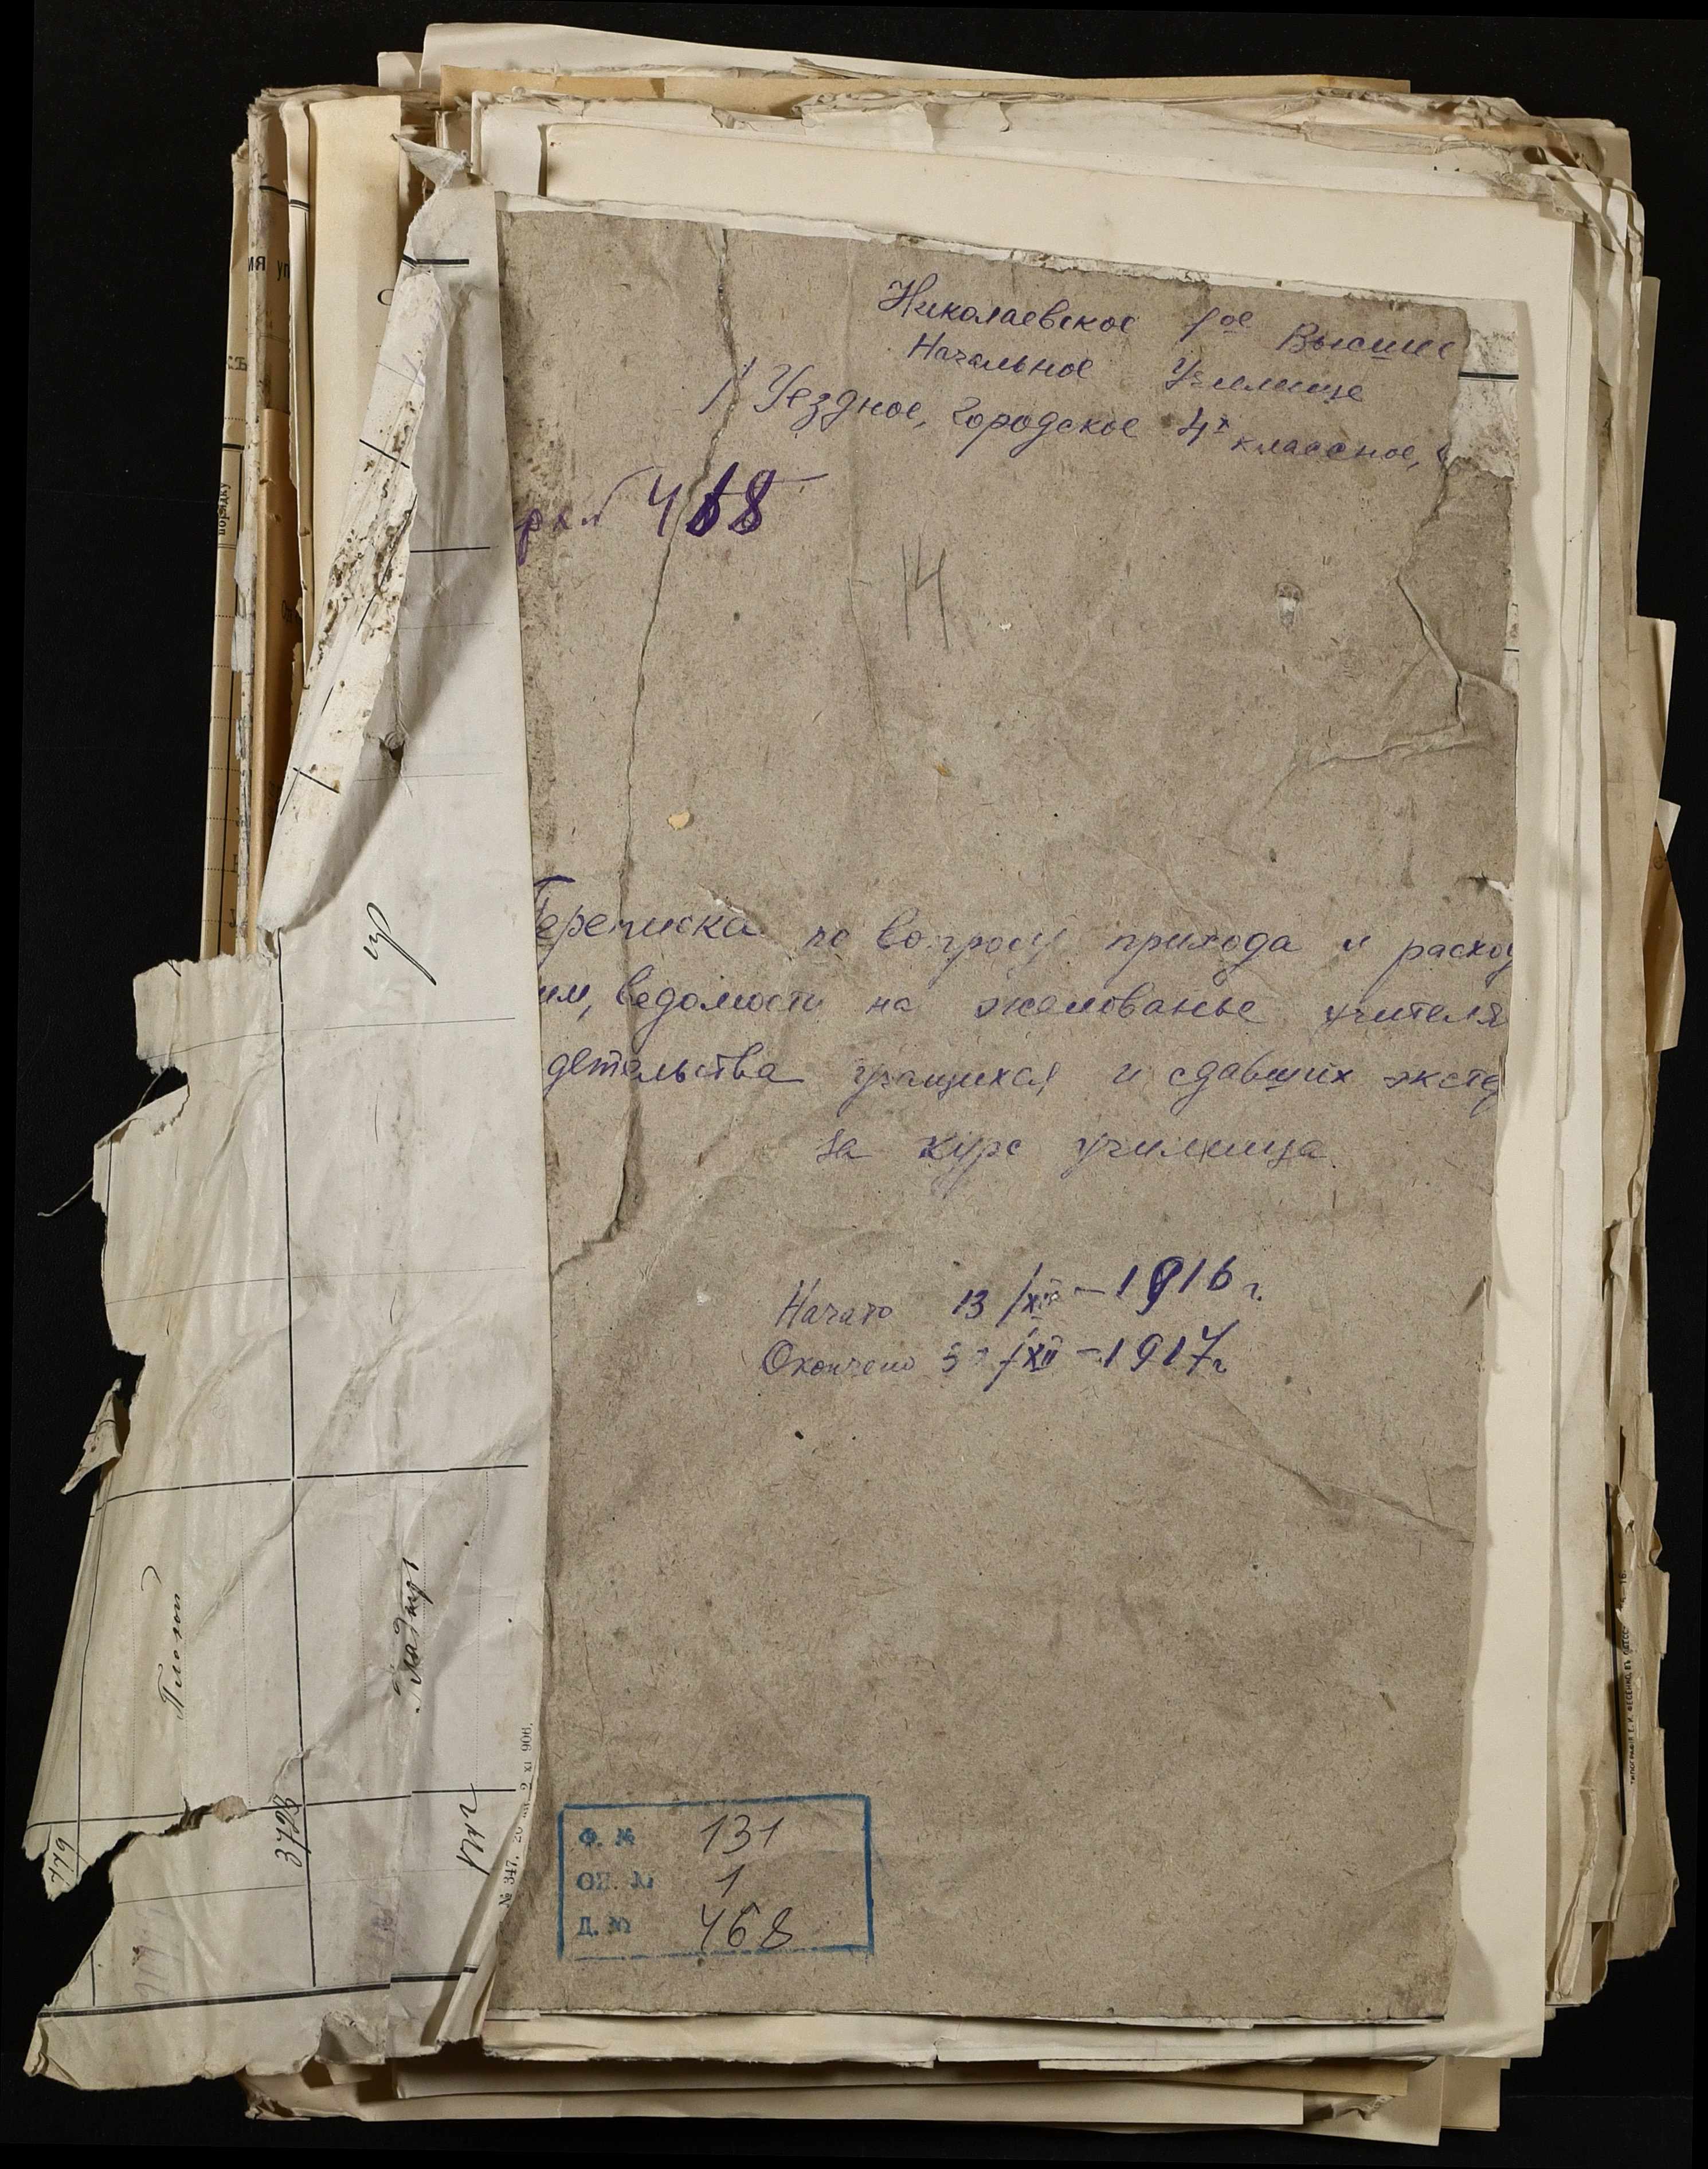 Николаевское 1ое Высшее
Начальное Училище
/ Уездное, городское 4х классное,
468
14
Переписка по вопросу прихода и расход
им, ведомости на жалованье учителя
детельства учащихся и сдавших эксте
за курс училища.
Начато 13/XII – 1916 г.
Окончено /XII – 1917 г.
Ф. № 131
ОП. № 1
Д. № 468
3728
779
№ 347. 2 XI 906.